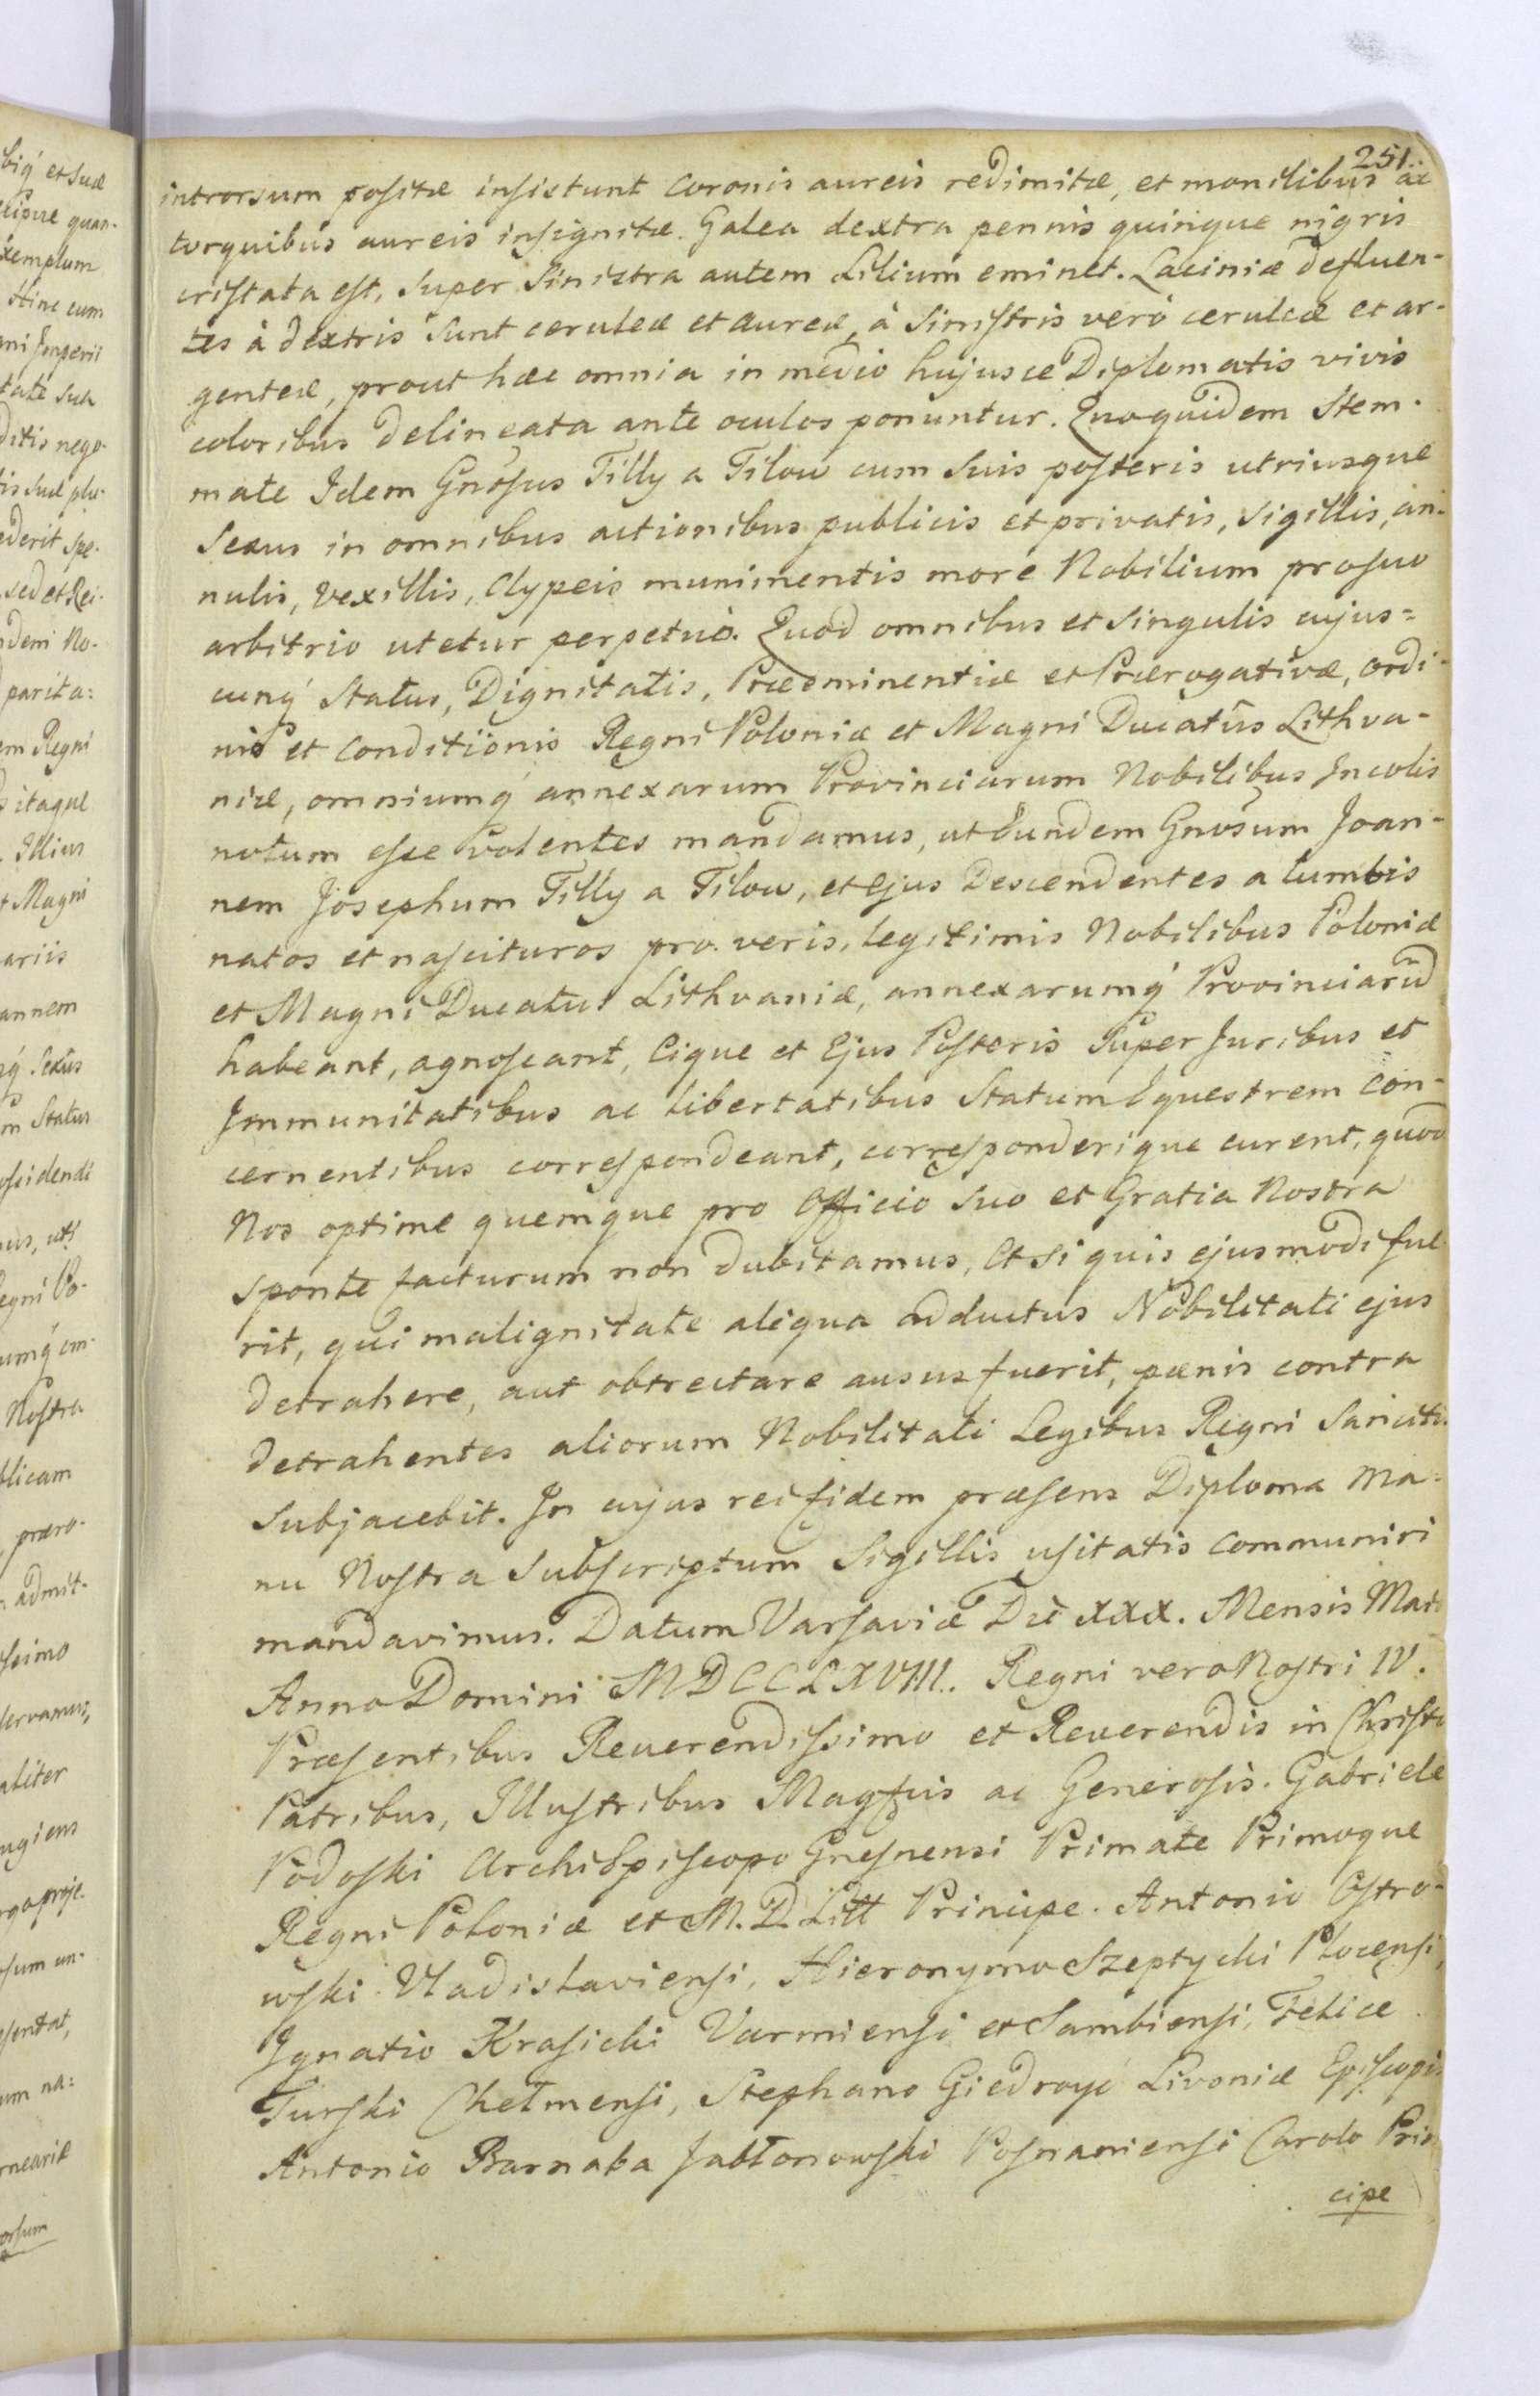 251.
introrsum positæ insistunt Coronis aureis redimitæ, et monilibus ac
torquibus aureis insignitæ. Galea dextra pennis quinque nigris
cristata est, Super Sinistra autem Lilium eminet. Laciniæ defluen-
tes à dextris Sunt ceruleæ et aureæ, à Sinistris verò ceruleæ et ar-
genteæ, prout hæc omnia in medio hujusce Diplomatis vivis
coloribus delineata ante oculos ponuntur. Quoquidem Stem-
mate Idem Gnosus Tilly a Tilow cum Suis posteris utriusque
Sexus in omnibus actionibus publicis et privatis, Sigillis, an-
nulis, Vexillis, Clypeis munimentis more Nobilium pro suo
arbitrio utetur perpetuò. Quod omnibus et Singulis cujus=
cunq́ Status, Dignitatis, Præeminentiæ et Prærogativæ, ordi-
nis et Conditionis Regni Poloniæ et Magni Ducatûs Lithva-
niæ, omniumq́ annexarum Provinciarum Nobilibus Incolis
notum esse volentes mandamus, ut Eundem Gnosum Joan-
nem Josephum Tilly a Tilow, et Ejus Descendentes a Lumbis
natos et nascituros pro veris, legitimis Nobilibus Poloniæ
et Magni Ducatus Lithvaniæ, annexarumq́ Provinciarũ
habeant, agnoscant, Eique et Ejus Posteris Super Juribus et
Immunitatibus ac libertatibus Statum Equestrem Con-
cernentibus correspondeant, corresponderique curent, quod
Nos optime quemque pro Officio Suo et Gratia Nostra
Sponte facturum non dubitamus, Et Si quis ejusmodi fue-
rit, qui malignitate aliqua adductus Nobilitati ejus
detrahere, aut obtrectare ausus fuerit, pœnis contra
detrahentes aliorum Nobilitati Legibus Regni Sancitis
Subjacebit. In cujus rei fidem præsens Diploma Ma-
nu Nostra Subscriptum Sigillis usitatis Communiri
mandavimus. Datum Varsaviæ Die XXX. Mensis
Anno Domini MDCCLXVIII. Regni vero Nostri IV.
Præsentibus Reverendissimo et Reverendis in Christo
Patribus, Illustribus Magfcis ac Generosis. Gabriele
Podoski Archi Episcopo Gnesnensi Primate Primoque
Regni Poloniæ et M. D. Litt Principe. Antonio Ostro-
wski Vladislaviensi, Hieronymo Szeptycki Plocensi,
Ignatio Krasicki Varmiensi et Sambiensi, Felice
Turski Chelmensi, Stephano Giedroyć Livoniæ Episcopis
Antonio Barnaba Jabłonowski Posnaniensi Carolo Prin
cipe